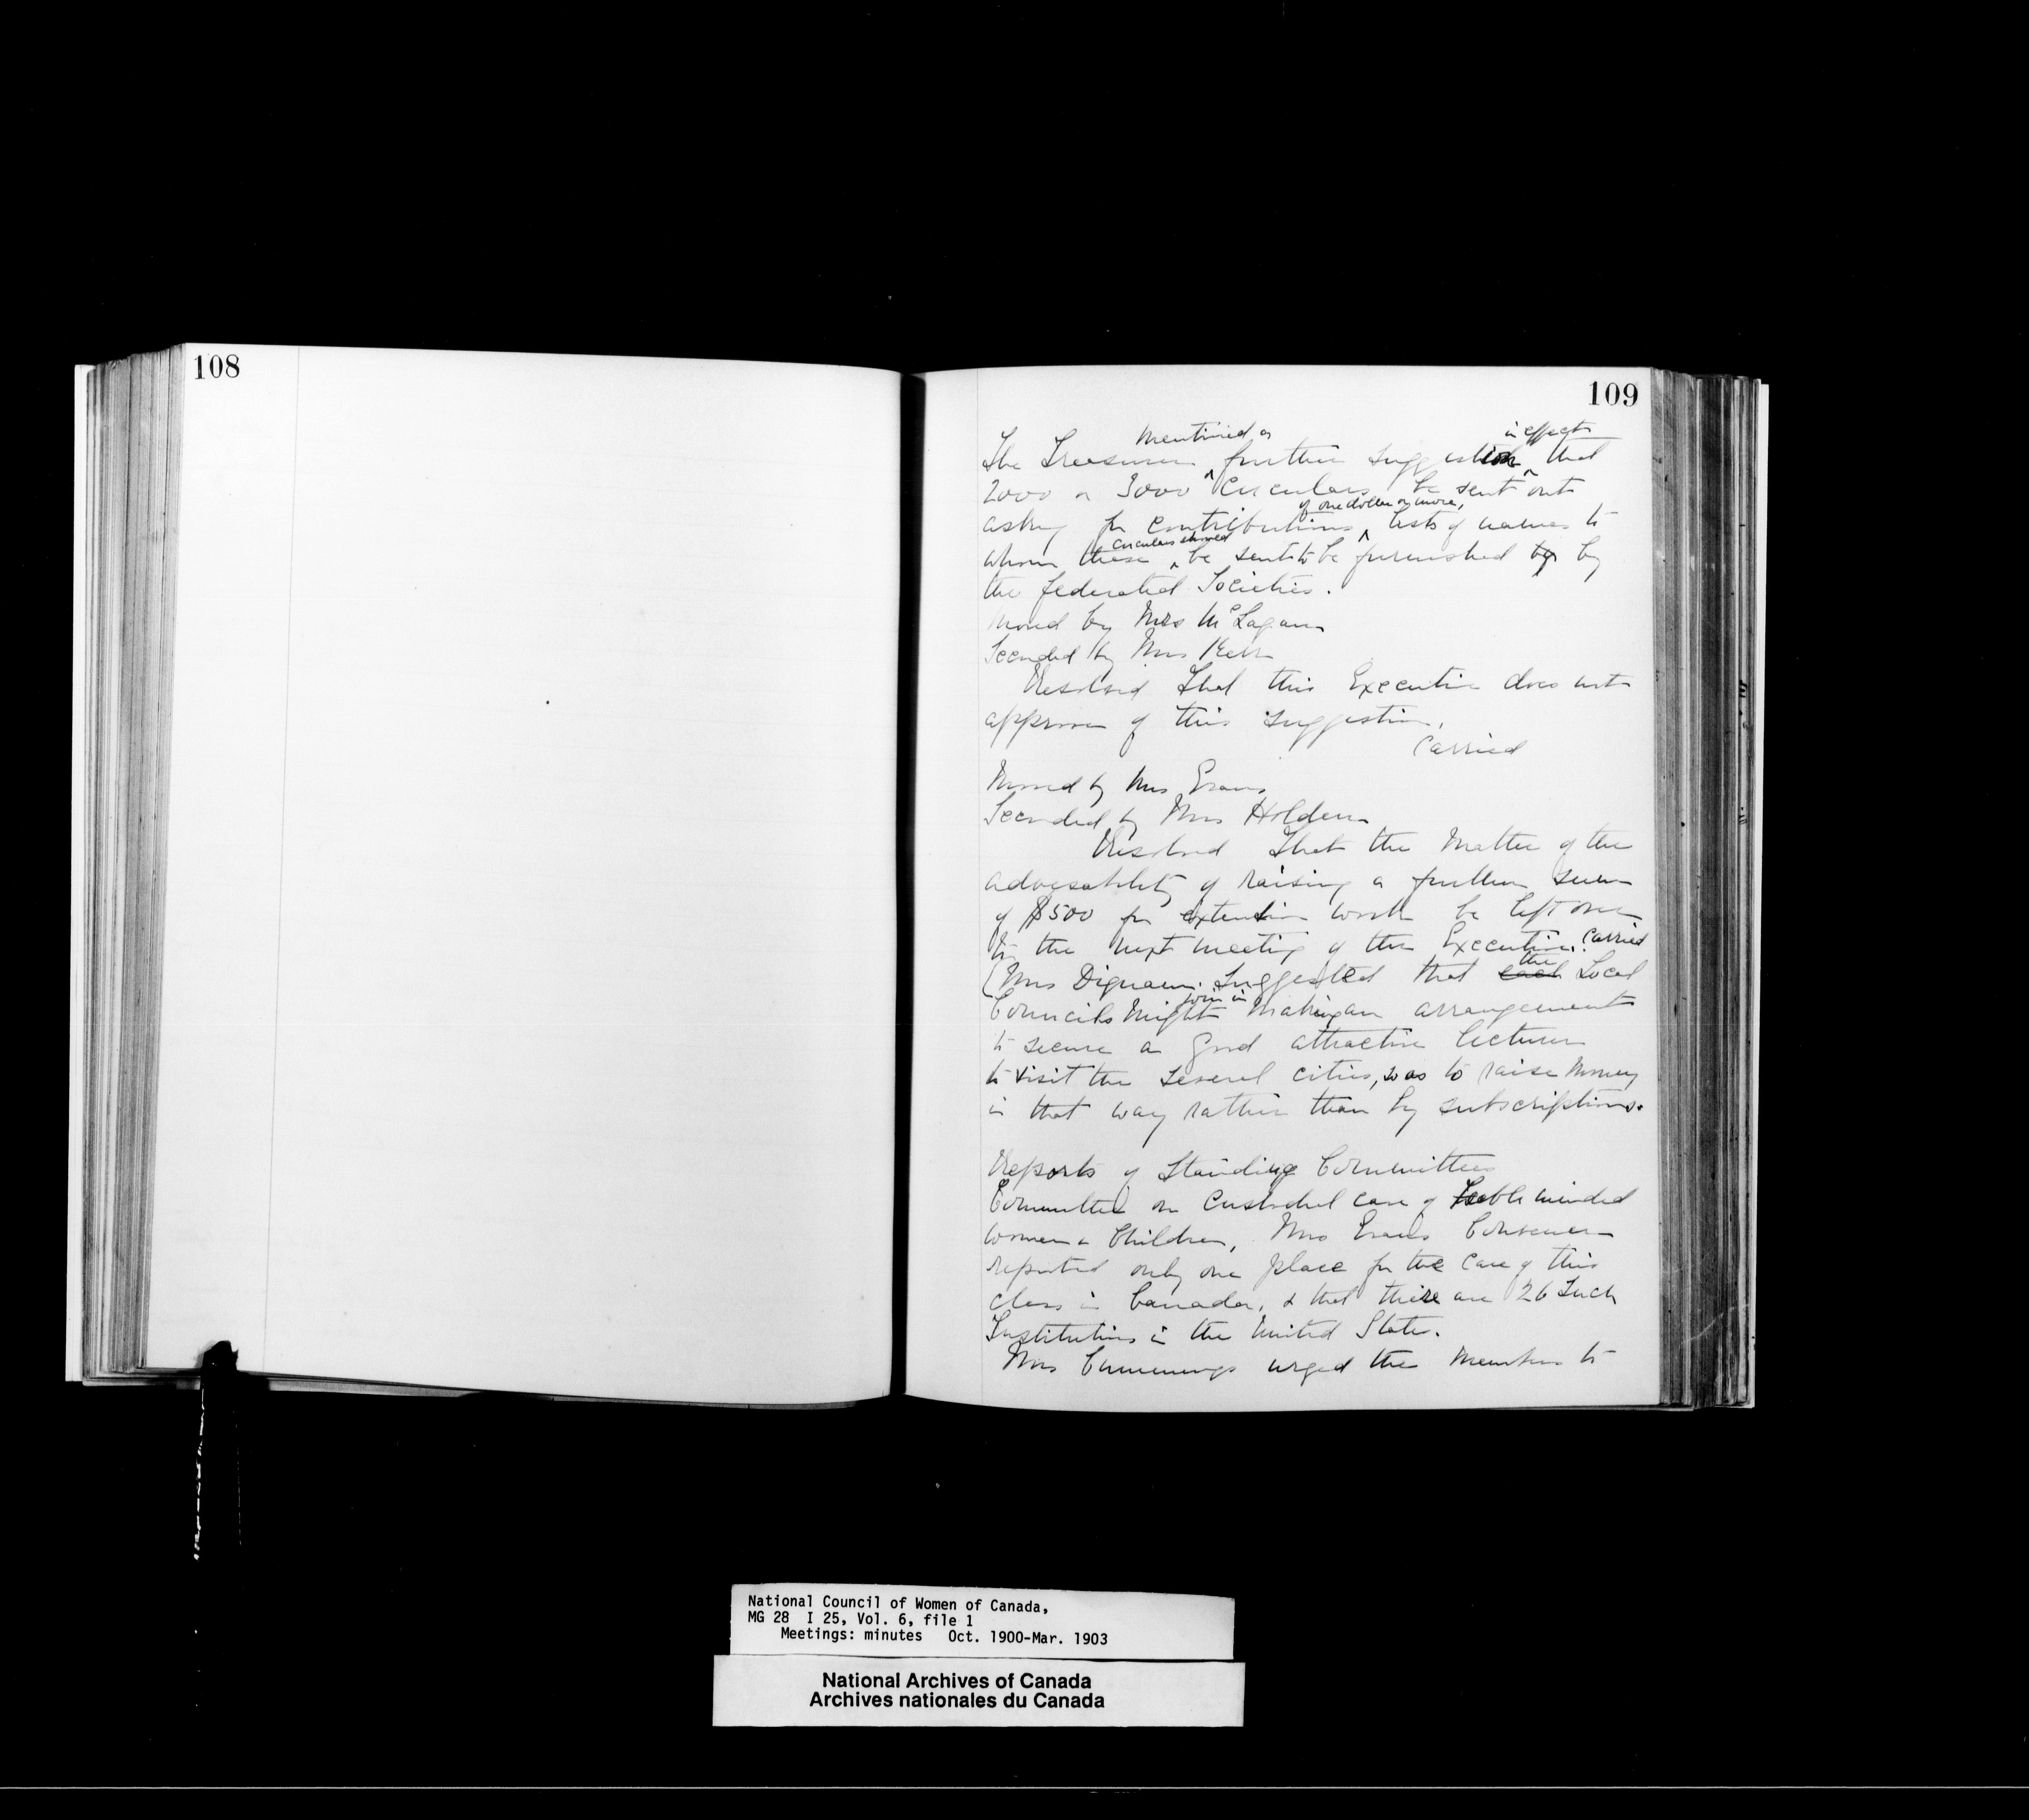 108
109
mentioned a in effect
The Treasurer further suggestion that
2000 or 3000 circulars be sent out
of one dollar or more,
asking for contributions, lists of names to
circulars should
whom these be sent to be furnished by by
the federated Societies.
Moved by Mrs McLagan
Seconded by Mrs Kerr
Resolved That this Executive does not
approve of this suggestion.
Carried
Moved by Mrs Evans
Seconded by Mrs Holden
Resolved That the matter of the
advisability of raising a further sum
of $500 for extension work be left over
to the next meeting of the Executive. Carried
the
(Mrs Dignam suggested that each Local
join in
Councils might making an arrangement
to secure a good attractive lecturer
to visit the several cities, so as to raise money
in that way rather than by subscriptions.
Reports of Standing Committees
Committee on Custodial care of feeble minded
women & Children, Mrs Evans Convener
reported only one place for the care of this
class in Canada, & that there are 26 such
Institutions in the United States.
Mrs Cummings urged the members to
National Council of Women of Canada,
MG 28 I 25, Vol. 6, file 1
Meetings: minutes Oct. 1900-Mar. 1903
National Archives of Canada
Archives nationales du Canada